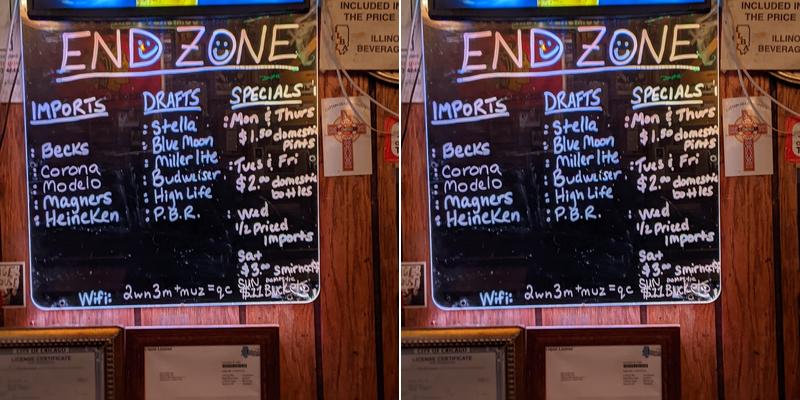 INCLUDED IN
THE PRICE
ILLINO
BEVERAG
END ZONE
IMPORTS
Becks
Corona
Modelo
Magners
HeineKen
DRAFTS
Stella
Blue Moon
Miller lite
Budwiser
High Life
P.B.R.
SPECIALS
Mon & Thurs
$1.50 domestic
Pints
Tues & Fri
$2.00 domestic
bottles
Wed
1/2 Priced
Imports
Sat
$3.00 smirnoff
SUN DOMESTIC
$11 BUCKETS
Wifi: 2wn3m+muz=qc
CITY OF CHICAGO
LICENSE CERTIFICATE
Liquor License
INCLUDED IN
THE PRICE
ILLINO
BEVERAG
END ZONE
IMPORTS
Becks
Corona
Modelo
Magners
HeineKen
DRAFTS
Stella
Blue Moon
Miller lite
Budwiser
High Life
P.B.R.
SPECIALS
Mon & Thurs
$1.50 domestic
Pints
Tues & Fri
$2.00 domestic
bottles
Wed
1/2 Priced
Imports
Sat
$3.00 smirnoff
SUN DOMESTIC
$11 BUCKETS
Wifi: 2wn3m+muz=qc
CITY OF CHICAGO
LICENSE CERTIFICATE
Liquor License